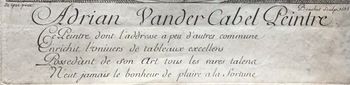 Adrian Vander Cabel Peintre
Ce Peintre dont l'addresse a peu d'autre commune
Enrichit l'univers de tableaux excellens
Possedant de son Art tous les rares talens
N'eut jamais le bonheur de plaire a la fortune